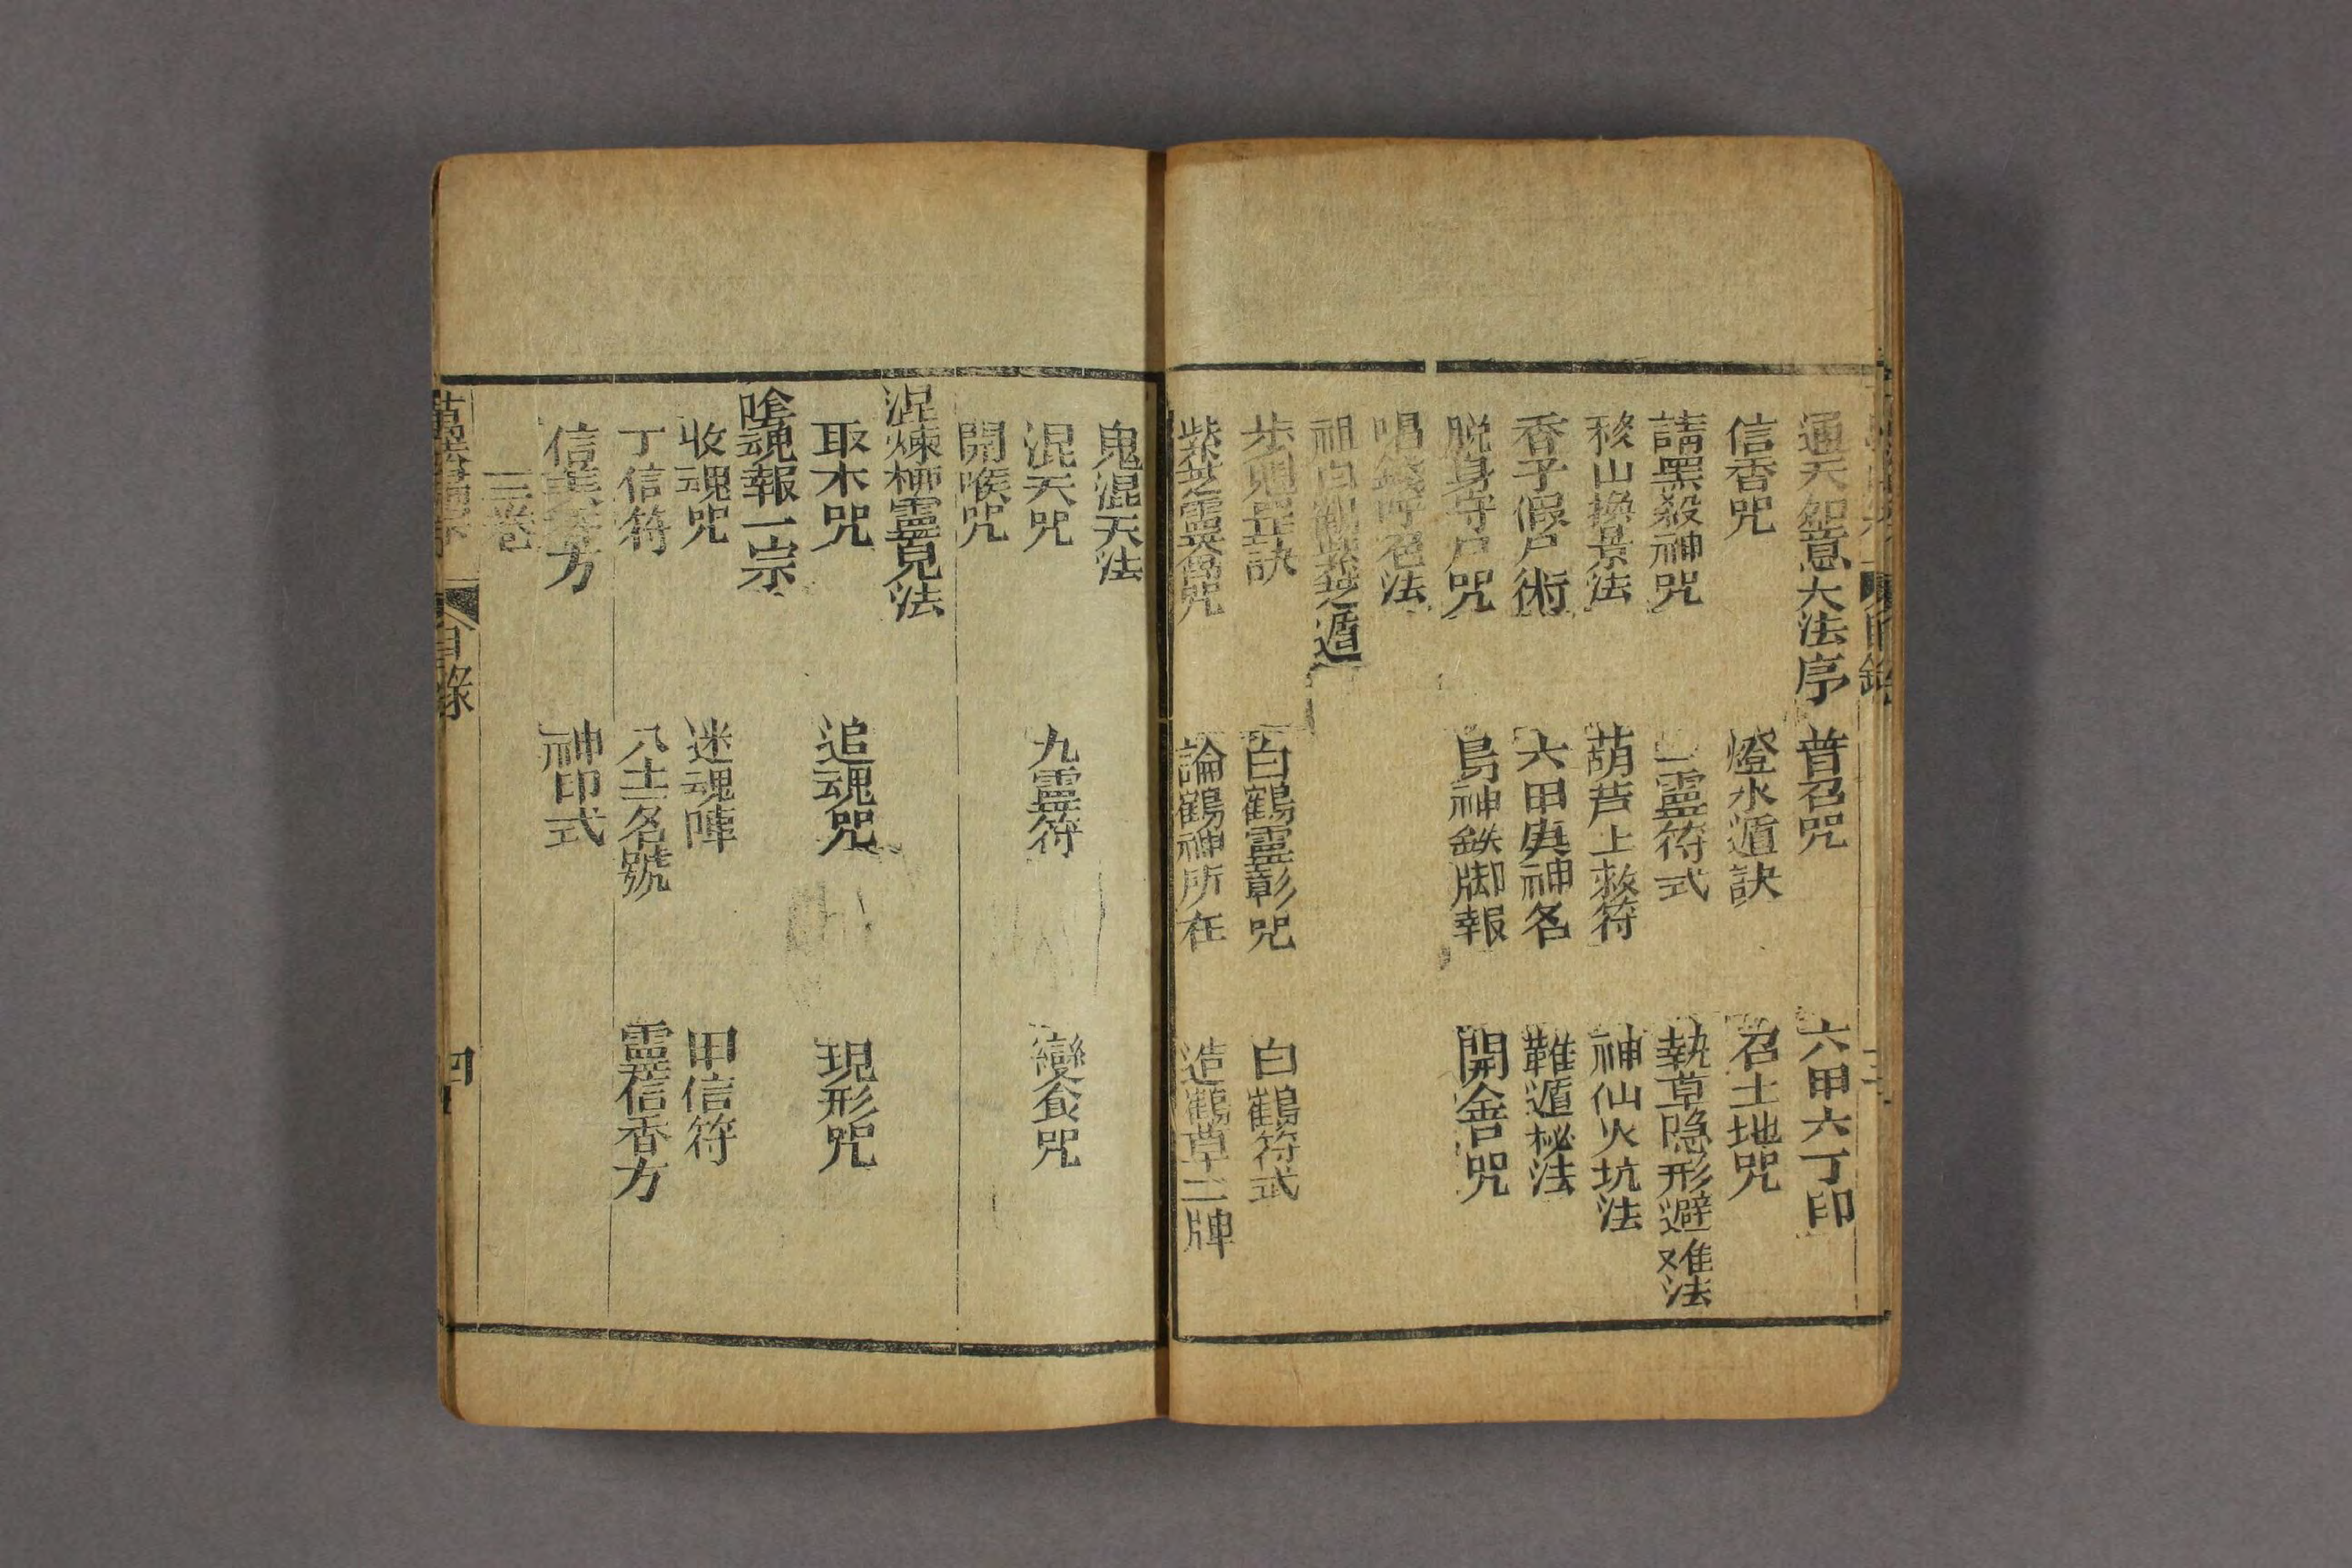 通天怨意大法序 普召咒 六甲六丁印
信香咒 燈水遁訣 召土地咒
請黑殺神咒 靈符式 執草隐形避难法
移山換景法 葫芦上救符 神仙火坑法
香子假尸術 六甲庚神名 難遁秘法
脱身守尸咒 鳥神鉄脚報 開舍咒
唱錢呼召法
祖白鶴紫芝遁
步魁罡訣 白鶴靈彰咒 白鶴符式
紫芝靈 咒 論鶴神所在 造鶴草二牌
鬼混天法
混天咒 九靈符 變食咒
開喉咒
涅煉柳靈見法
取木咒 追魂咒 現形咒
嗆魂報一宗
收魂咒 迷魂陣 甲信符
丁信符 八士名號 靈信香方
信香方 神印式
三卷
目錄 四